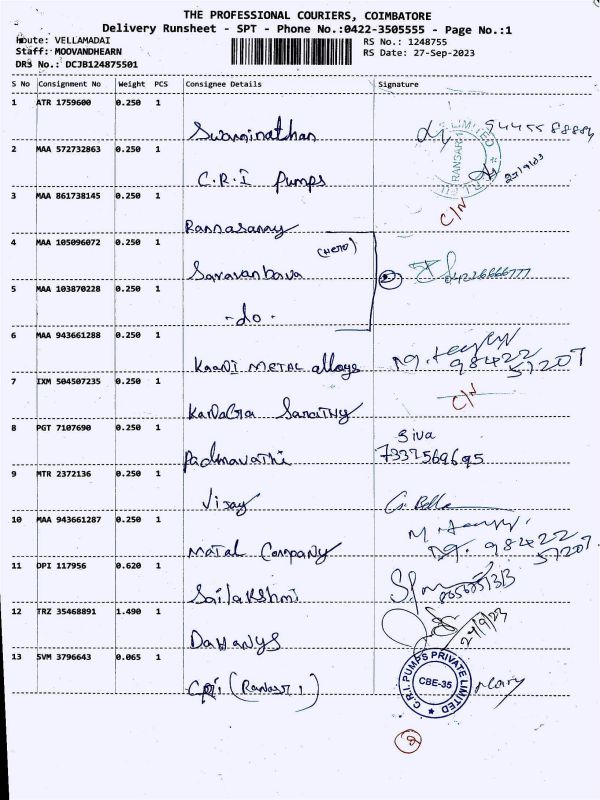 THE PROFESSIONAL COURIERS, COIMBATORE
Delivery Runsheet - SPT - Phone No.:0422-3505555 - Page No.:1
Route: VELLAMADAI RS No.: 1248755
Staff: MOOVANDHEARN RS Date: 27-Sep-2023
DRS No.: DCJB124875501
S No Consignment No Weight PCS Consignee Details Signature
1 ATR 1759600 0.250 1
Swaminathan 9445588884
2 MAA 572732863 0.250 1
C.R.I Pumps 27/9/23
3 MAA 861738145 0.250 1 C/N
Rannasamy
4 MAA 105096072 0.250 1
Saravanbava (Hero) 2 04226666777
5 MAA 103870228 0.250 1
-do-
6 MAA 943661288 0.250 1
KaADI METAL alloys 98422 57207
7 IXM 504507235 0.250 1 C/N
8 PGT 7107690 0.250 1 Siva
Padmavathi 7337569695
9 MTR 2372136 0.250 1
Vijay G. Bella
10 MAA 943661287 0.250 1
Matal Company 98422 57207
11 OPI 117956 0.620 1
Sailakshmi
12 TRZ 35468891 1.490 1 27/9/23
Dahanys
13 SVM 3796643 0.065 1 C.R.I. PUMPS PRIVATE LIMITED CBE-35
2